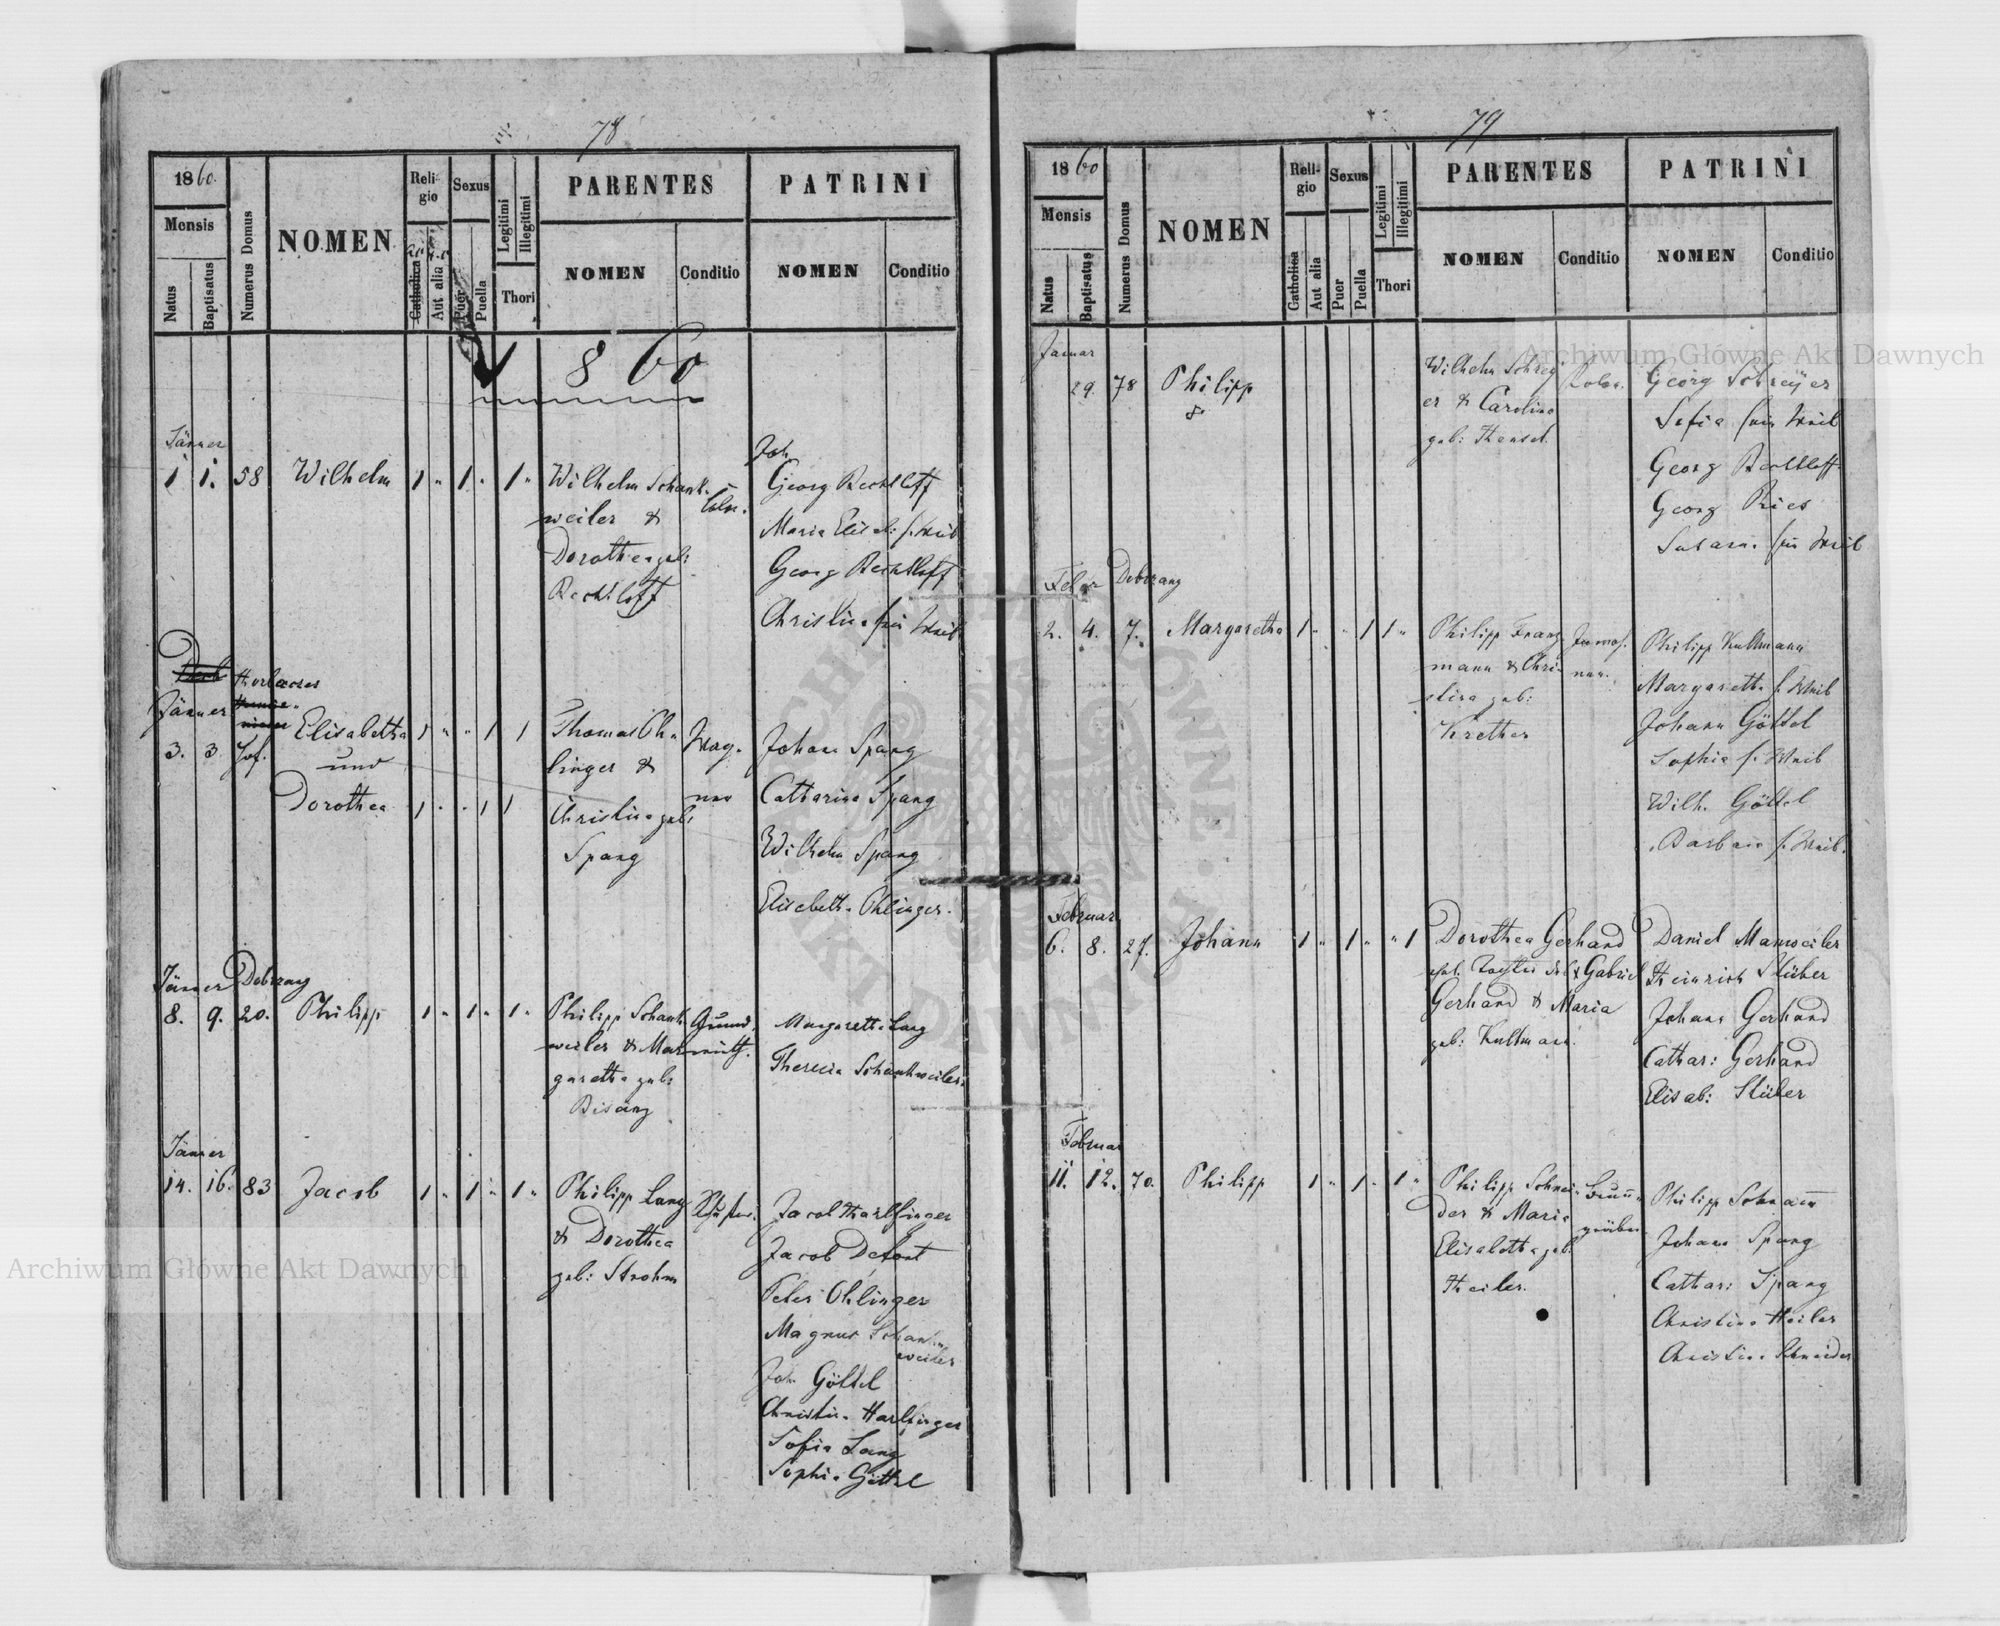 78
1860.
Mensis
Natus
Baptisatus
Numerus Domus
NOMEN
Religio
Catholica
Aut alia
Sexus
Puer
Puella
Legitimi
Illegitimi
Thori
PARENTES
NOMEN
Conditio
PATRINI
NOMEN
Conditio
1860
Jänner
1 1. 58 Wilhelm 1 " 1 " 1 "
Wilhelm Schank-
weiler &
Dorothea geb:
Bechtloff
Joh
Georg Bechtloff
Maria Elisab: s. Weib
Georg Bechtloff
Christina sein Weib
Jänner
3. 3. Jos. Elisabetha 1 " " 1 1
und
Dorothea 1 " " 1 1
Thomas Oh-
linger &
Christina geb:
Spang
Wag-
ner
Johann Spang
Catharina Spang
Wilhelm Spang
Elisabetha Ohlinger.
Jänner Dobrzany
8. 9. 20. Philipp 1 " 1 " 1 "
Philipp Schank
weiler & Mar
garetha geb:
Bisanz
Grund-
wirth.
Margaretha Lang
Theresia Schankweiler
Jänner
14. 16. 83 Jacob 1 " 1 " 1 "
Philipp Lang
& Dorothea
geb: Strohm
Schuster.
Jacob Harlfinger
Jacob Dekant
Peter Ohlinger
Magnus Schank
weiler
Joh. Göttel
Christina Harlfinger
Sofia Lang
Sophia Göttel
79
1860
Mensis
Natus
Baptisatus
Numerus Domus
NOMEN
Religio
Catholica
Aut alia
Sexus
Puer
Puella
Legitimi
Illegitimi
Thori
PARENTES
NOMEN
Conditio
PATRINI
NOMEN
Conditio
Januar
29. 78 Philipp
Wilhelm Schrey
er & Carolina
geb: Hensel
Georg Schreyer
Sofia sein Weib
Georg Bechtloff
Georg Pries
Susana sein Weib
Feber Dobrzany
2. 4. 7. Margaretha 1 " " 1 1 "
Philipp Franz
mann & Chri-
stina geb:
Krether
Philipp Kullmann
Margaretha s. Weib
Johann Göttel
Sophia s. Weib
Wilh. Göttel
Barbara s. Weib.
Februar
6. 8. 27. Johann 1 " 1 " " 1
Dorothea Gerhard
Gabriel
Gerhard & Maria
geb: Kullmann.
Daniel Manweiler
Heinrich Stüber
Johann Gerhard
Cathar: Gerhard
Elisab: Stüber
Februar
11. 12. 70. Philipp 1 " 1 " 1 "
Philipp Schnei-
der & Maria
Elisabetha geb:
Heiler.
Philipp Schmann
Johann Spang
Cathar: Spang
Christina Heiler
Christina Schneider
Archiwum Główne Akt Dawnych
Archiwum Główne Akt Dawnych